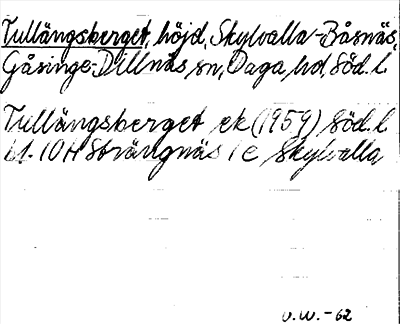 Tullängsberget, höjd, Skylvalla-Båsnäs,
Gåsinge-Dillnäs sn, Daga hd, Söd. l.
Tullängsberget ek (1959) Söd. l
bl. 10H Strängnäs 1 c Skylvalla
U.W. -62